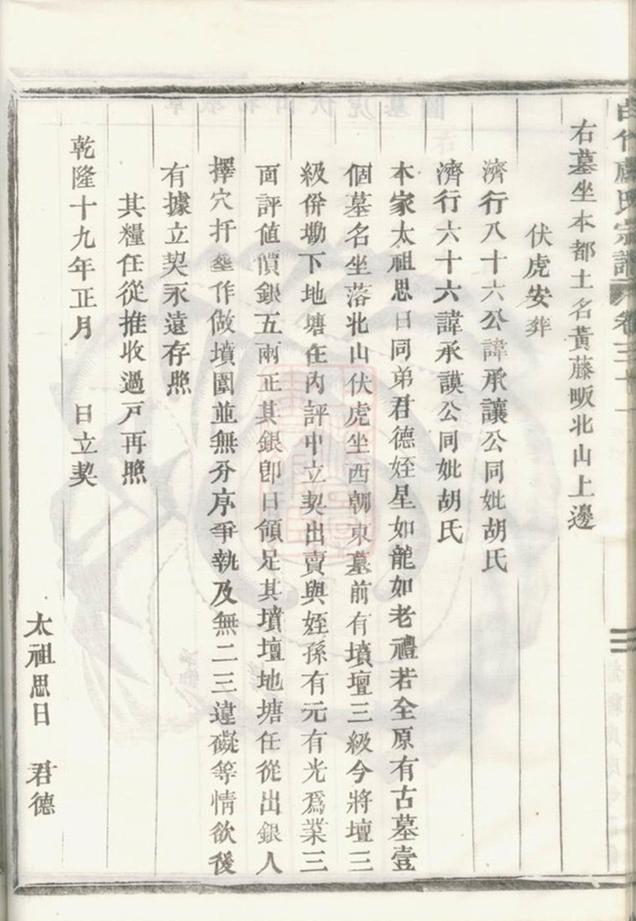 右墓坐本都土名黃藤畈北山上邊
伏虎安葬
濟行八十六公諱承讓公同妣胡氏
濟行六十六諱承謨公同妣胡氏
本家太祖思日同弟君德姪星如龍如老禮若全原有古墓壹
個墓名坐落北山伏虎坐西朝東墓前有墳壇三級今將壇三
級併塝下地塘在內評中立契出賣與姪孫有元有光爲業三
面評値價銀五兩正其銀卽日領足其墳壇地塘任從出銀人
擇穴扦塟作做墳園並無分序爭執及無二三違礙等情欲後
有據立契永遠存照
其糧任從推收過戸再照
乾隆十九年正月　日立契
太祖思日　君德